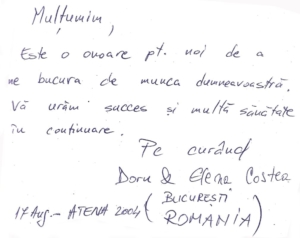 Mulțumim,
Este o onoare pt. noi de a
ne bucura de munca dumneavoastră.
Vă urăm succes și multă sănătate
în continuare.
Pe curând
Doru & Elena Costea
17 Aug. - ATENA 2004 (BUCUREȘTI
ROMANIA)